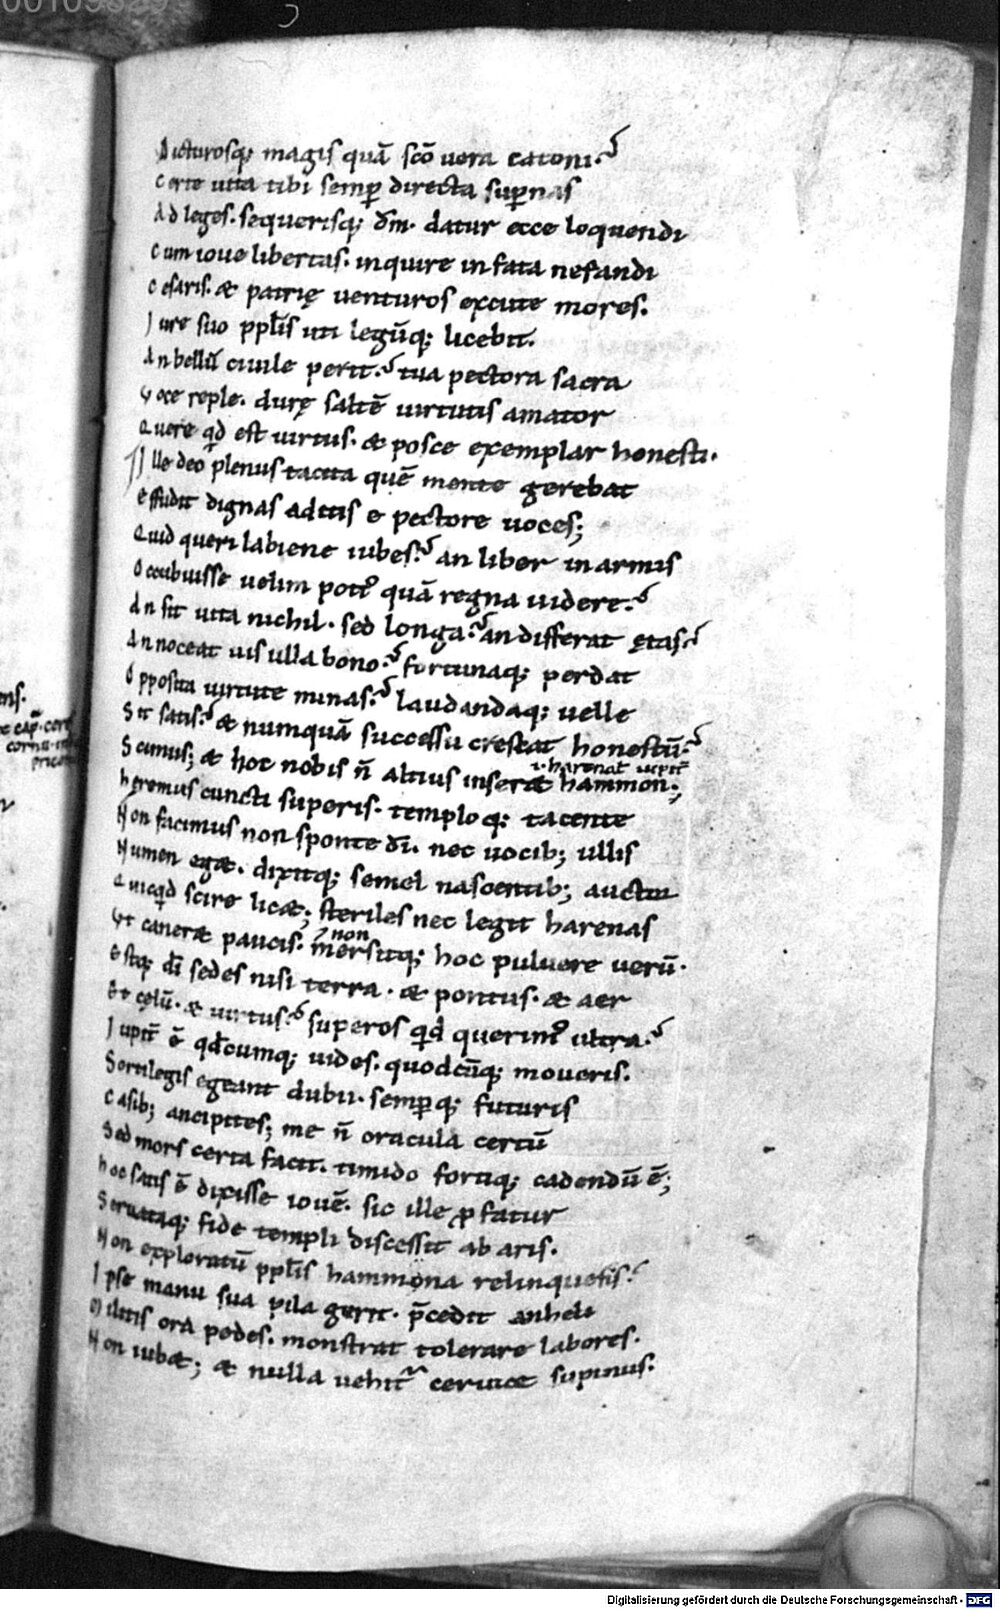 Dicturosq; magis quā scō uera catoni.
Certe uita tibi semꝑ directa suꝑnas
Ad leges. sequerisq; dm̄. datur ecce loquendi
Cum ioue libertas. inquire in fata nefandi
Cesaris. & patrię uenturos excute mores.
Iure suo pplīs uti legūq; licebit.
An bellū ciuile perit. tua pectora sacra
Voce reple. durę saltē uirtutis amator
Quere qd est uirtus. & posce exemplar honesti.
Ille deo plenus tacita quē mente gerebat
Effudit dignas aditis e pectore uoces;
Quid queri labiene iubes. an liber in armis
Occubuisse uelim poti' quā regna uidere.
An sit uita nichil. sed longa. an differat ętas.
An noceat uis ulla bono. fortunaq; perdat
Opposita uirtute minas. laudandaq; uelle
Sit satis. & numquā successu crescat honestū.
i. harenat
Scimus; & hoc nobis n̄ altius inser& hammon;
heremus cuncti superis. temploq; tacente
Non facimus non sponte dī. nec uocib; ullis
Numen eg&. dixitq; semel nascentib; auctor
Quicqd scire lic&; steriles nec legit harenas
non
Vt caner& paucis. mersitq; hoc puluere uerū.
Estq; dī sedes nisi terra. & pontus. & aer
Et cęlū. & uirtus. superos qd querim' ultra.
Iupit̄ ē qdcumq; uides. quodcūq; moueris.
Sortilegis egeant dubii. semꝑq; futuris
Casib; ancipites; me n̄ oracula certū
Sed mors certa facit. timido fortiq; cadendū ē;
hoc satis ē dixisse iouē. sic ille ꝓfatur
Seruataq; fide templi discessit ab aris.
Non exploratū pplīs hammona relinquens.
Ipse manu sua pila gerit. p̄cedit anheli
Militis ora pedes. monstrat tolerare labores.
Non iub&; & nulla uehit' ceruice supinus.
ns.
Digitalisierung gefördert durch die Deutsche Forschungsgemeinschaft - DFG